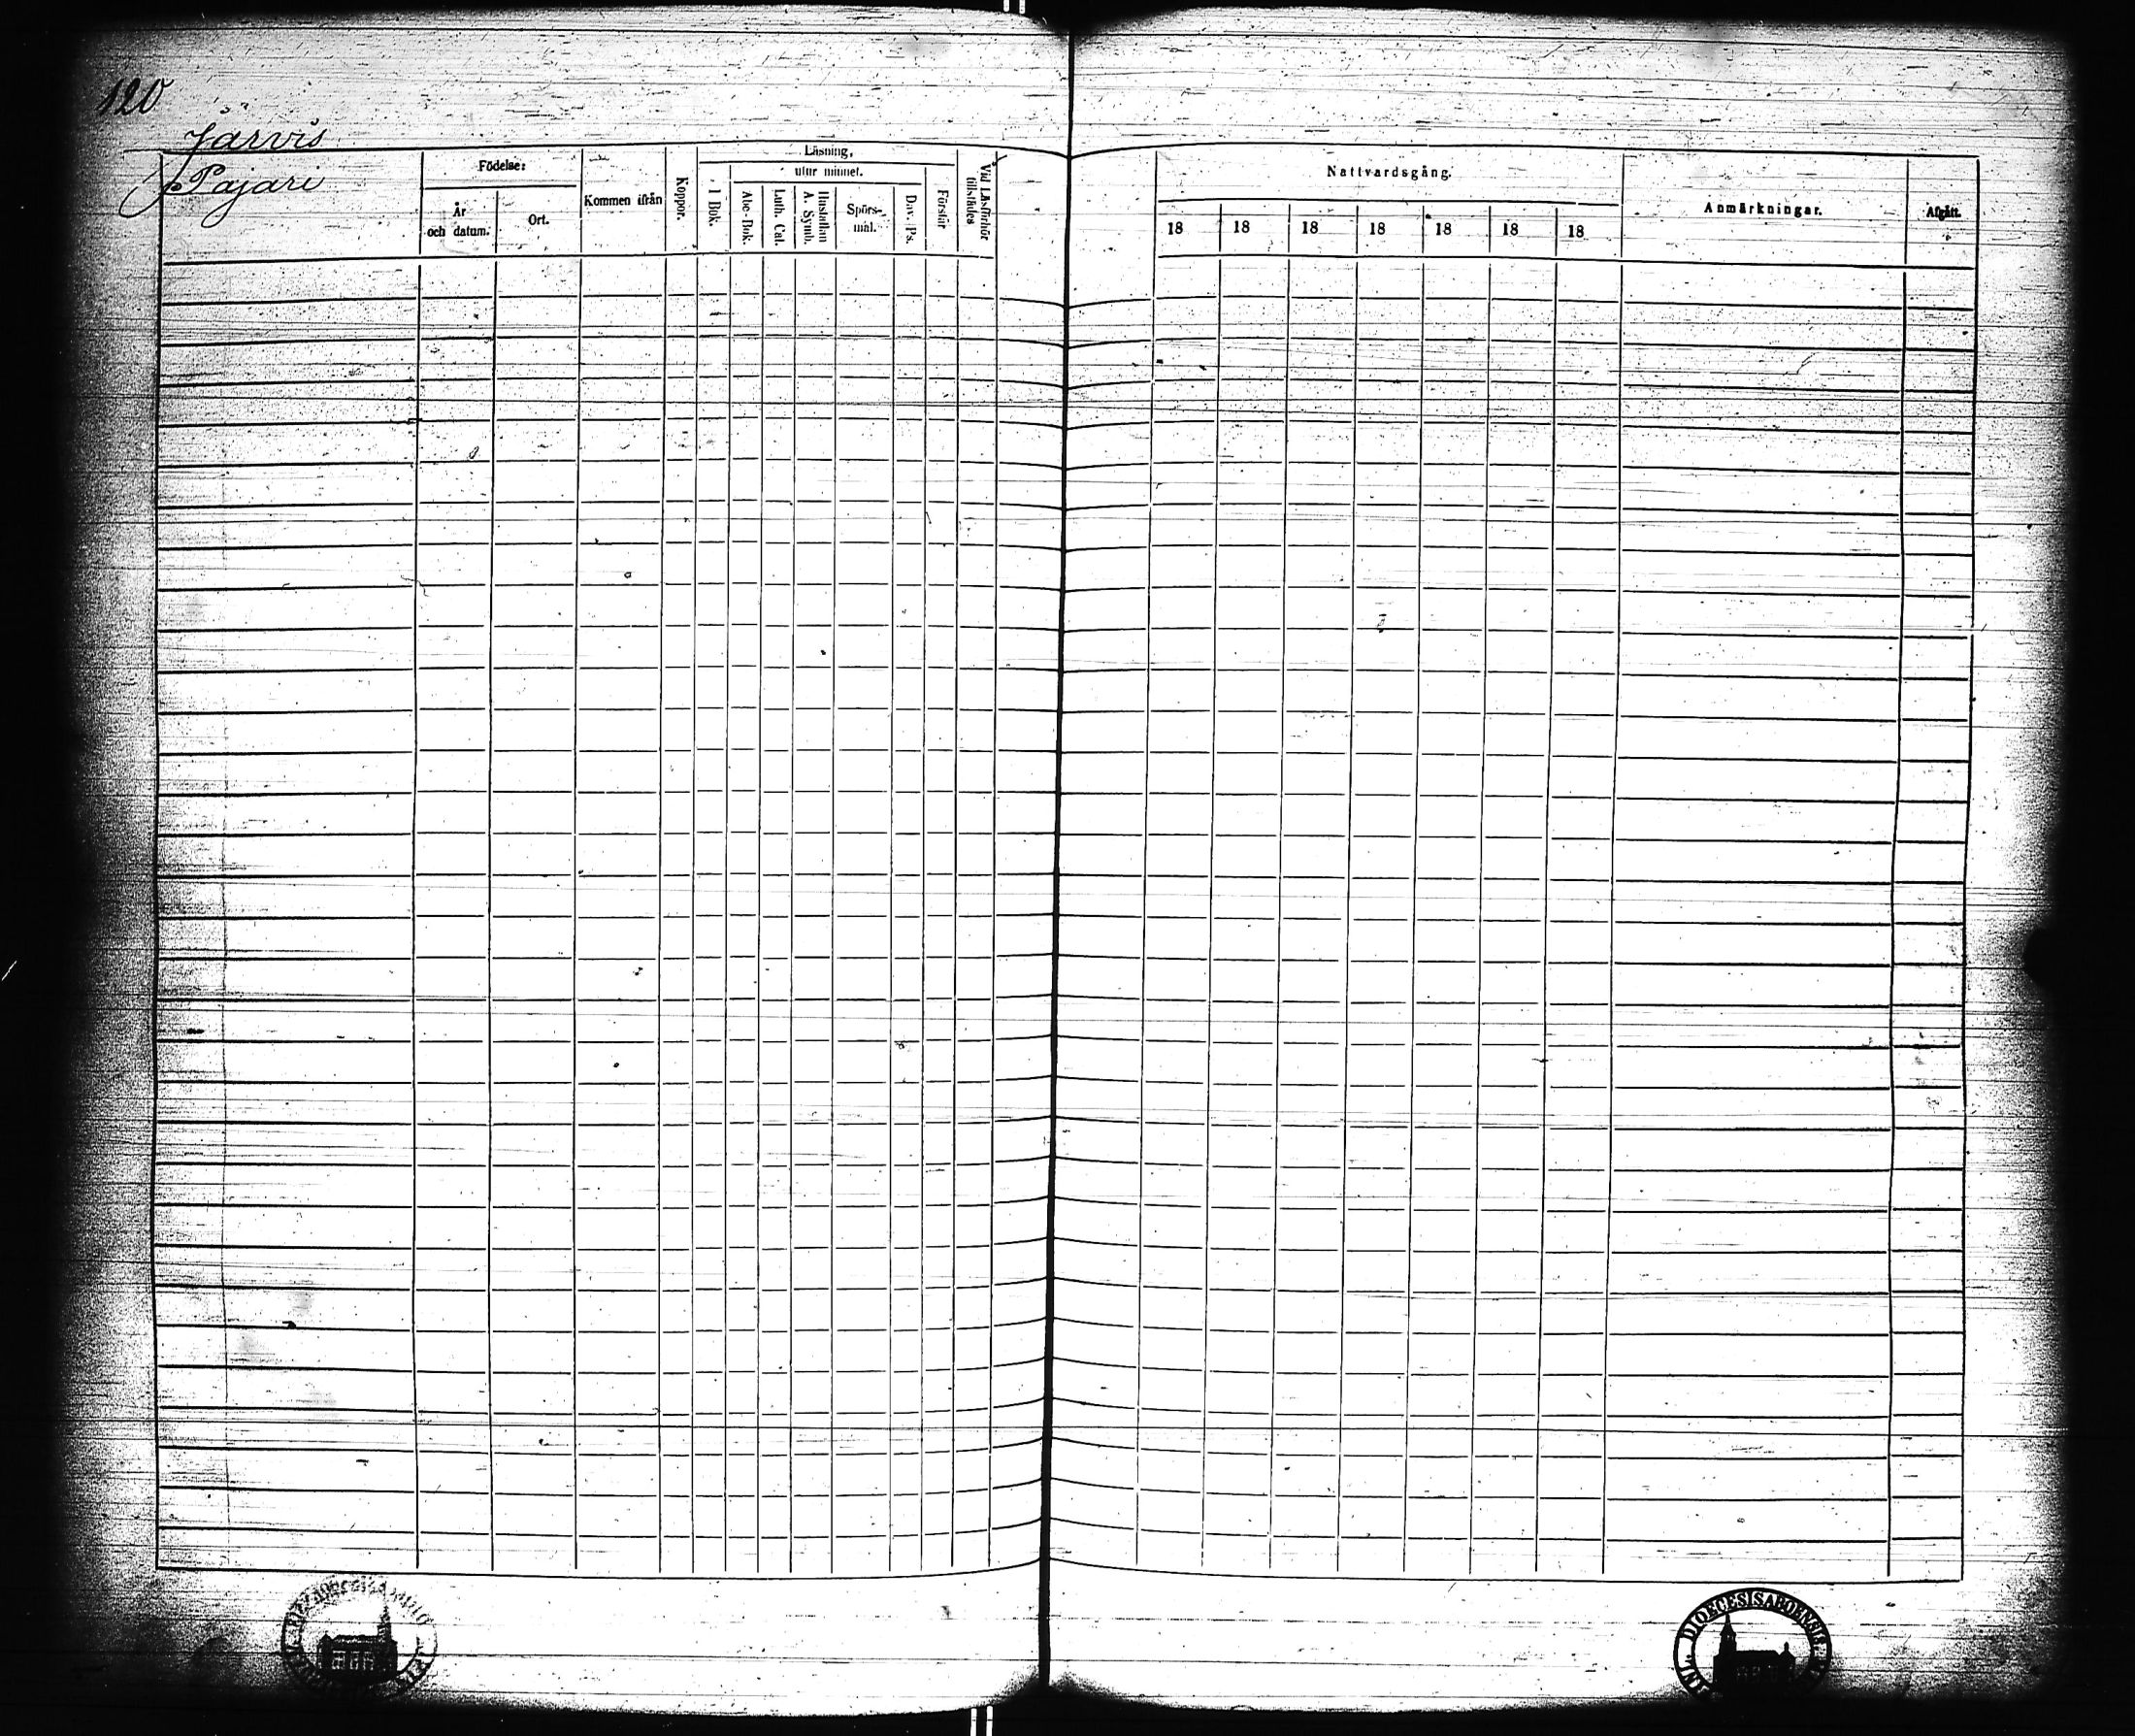 120
Järvis
Pajari
Födelse:
År
och datum.
Ort.
Kommen ifrån
Koppor.
Läsning,
I Bok.
utur minnet.
Abc-Bok.
Luth. Cat.
Hustaflan
A. Symb.
Spörs-
mål.
Dav. Ps.
Förstår
Vid Läsförhör
tillstädes
Nattvardsgång.
18 18 18 18 18 18 18
Anmärkningar.
Afgått.
DIOECESIS ABOENSIS